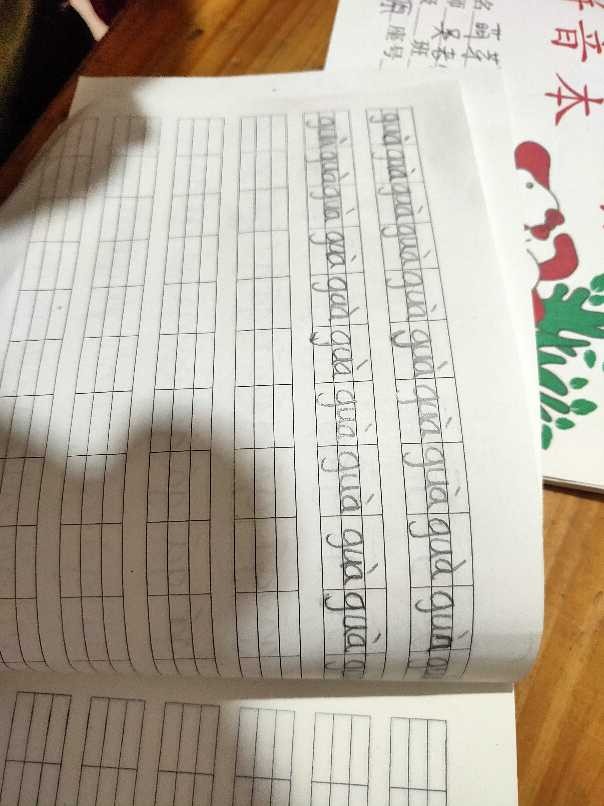 音本
名
班
座号
guà guà guà guà guà guà guà guà guà guà
guà guà guà guà guà guà guà guà guà guà